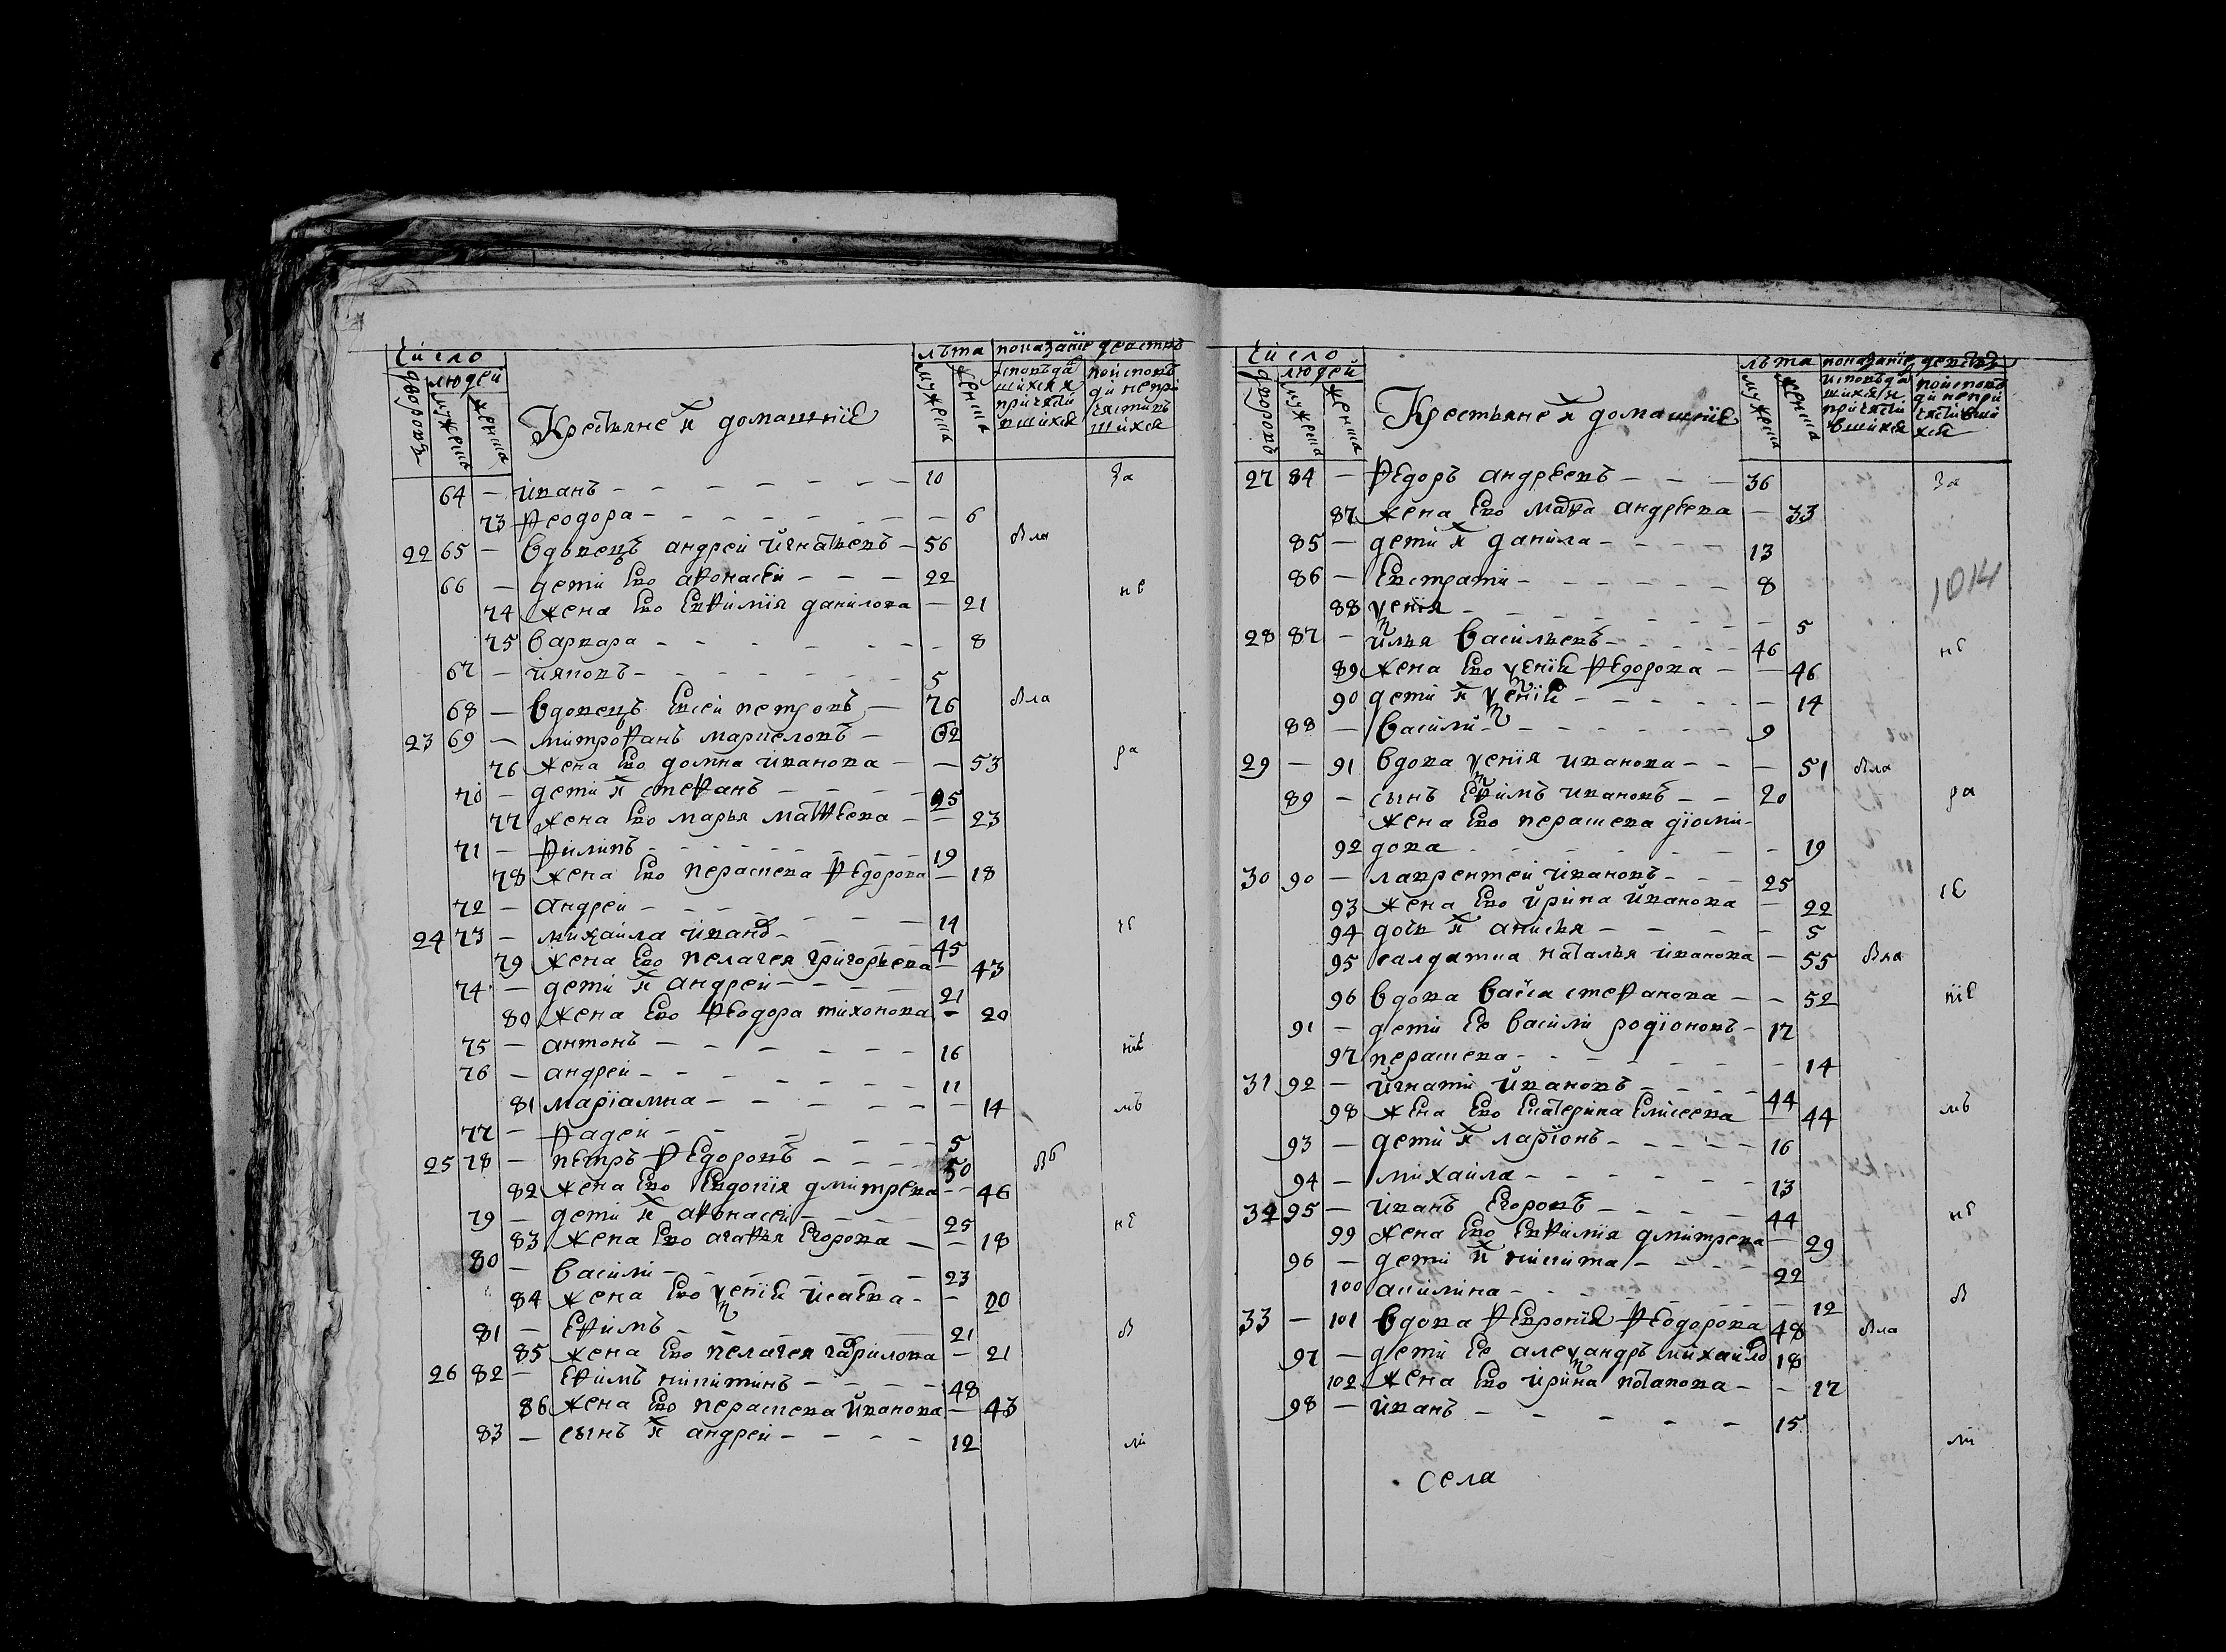 Число
людей
дворовъ
мужеска
женска
Крестьяне и домашнїе
лѣта
мужеска
женска
показанїе действ
исповѣда
шихся и
причасти
вшихся
по исповѣ
ди непри
частивъ
шихся
64 — иванъ — 10 За
73 Ѳеодора — 6
22 65 — вдовецъ андрей игнатьевъ — 56 вла
66 — дети ево аѳонасей — 22
74 жена ево евѳимїя данилова — 21 не
75 варвара — 8
67 — ияковъ — 5
68 — вдовецъ евсеи петровъ — 76 вла
23 69 — митроѳанъ маркеловъ — 62
76 жена ево домна иванова — 53 ра
70 — дети их стеѳанъ — 25
77 жена ево марья матѳеева — 23
71 — Ѳилипъ — 19
78 жена ево параскева Ѳедорова — 18
72 — андреи — 14
24 73 — михаила иванов — 45
79 жена ево пелагея григорьева — 43
74 — дети их андреи — 21
80 жена ево Ѳеодора тихонова — 20
75 — антонъ — 16 нїе
76 — андреи — 11
81 марїамна — 14 мъ
77 — Ѳадеи — 5
25 78 — петръ Ѳедоровъ — 50
82 жена ево евдокїя дмитрева — 46
79 — дети их аѳонасеи — 25 не
83 жена ево агаѳья егорова — 18
80 — василии — 23
84 жена ево ѯенїя исаева — 20
81 — еѳимъ — 21 в
85 жена ево пелагея гаврилова — 21
26 82 — еѳимъ никитинъ — 48
86 жена ево параскева иванова — 43
83 — сынъ их андреи — 12 ли
Число
людей
дворовъ
мужеска
женска
Крестьяне и домашнїе
лѣта
мужеска
женска
показанїе действъ
исповѣда
шихся и
причасти
вшихся
по испов
ди непри
частивши
хся
27 84 — Ѳедоръ андреевъ — 36 За
87 жена ево марѳа андреева — 33
85 — дети их данила — 13
86 — евстратии — 8 1014
88 ѯенїя — 5
28 87 — илья васильевъ — 46 не
89 жена ево ѯенїя Ѳедорова — 46
90 дети их ѯенїя — 14
88 — василии — 9
29 — 91 вдова ѯенїя иванова — 51 вла
89 — сынъ еѳимъ ивановъ — 20 ра
жена ево парaскева дїоми-
92 дова — 19
30 90 — лаврентеи ивановъ — 25
93 жена ево ирина иванова — 22
94 дочь их анисья — 5
95 салдатка наталья иванова — 55 вла
96 вдова васса стеѳанова — 52 нїе
91 — дети ее василии родїоновъ — 17
97 парaскева — 14
31 92 — игнати ивановъ — 44
98 жена ево екатерина елисеева — 44 мъ
93 — дети их ларїонъ — 16
94 — михаила — 13
32 95 — иванъ егоровъ — 44 не
99 жена ево евѳимїя дмитрева — 29
96 — дети их никита — 22
100 акилина — 12 в
33 — 101 вдова Ѳевронїя Ѳеодорова 48 вла
97 — дети ее алеѯандръ михаило 18
102 жена ево ирина потапова — 17
98 — иванъ — 15
ли
села